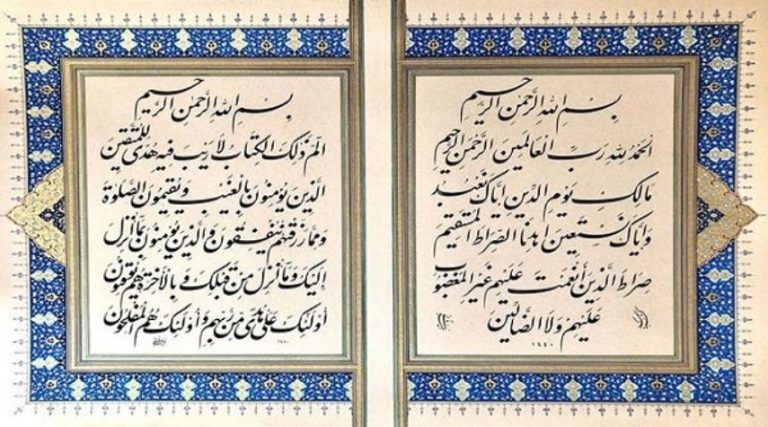 بِسْمِ اللهِ الرَّحْمٰنِ الرَّحيمِ
اَلْحَمْدُ لِلهِ رَبِّ الْعالَمينَ الرَّحْمٰنِ الرَّحيمِ
مالِكِ يَوْمِ الدّينِ اِيّاكَ نَعْبُدُ
وَاِيّاكَ نَسْتَعينُ اِهْدِنَا الصِّراطَ الْمُسْتَقيمَ
صِراطَ الَّذينَ اَنْعَمْتَ عَلَيْهِمْ غَيْرِ الْمَغْضُوبِ
عَلَيْهِمْ وَلَا الضّالّينَ
١٤٤٠
بِسْمِ اللهِ الرَّحْمٰنِ الرَّحيمِ
الم ذٰلِكَ الْكِتابُ لا رَيْبَ فيهِ هُدىً لِلْمُتَّقينَ
الَّذينَ يُؤْمِنُونَ بِالْغَيْبِ وَيُقيمُونَ الصَّلٰوةَ
وَمِمّا رَزَقْناهُمْ يُنْفِقُونَ وَالَّذينَ يُؤْمِنُونَ بِما اُنْزِلَ
اِلَيْكَ وَما اُنْزِلَ مِنْ قَبْلِكَ وَبِالْاٰخِرَةِ هُمْ يُوقِنُونَ
اُولٰئِكَ عَلىٰ هُدىً مِنْ رَبِّهِمْ وَاُولٰئِكَ هُمُ الْمُفْلِحُونَ